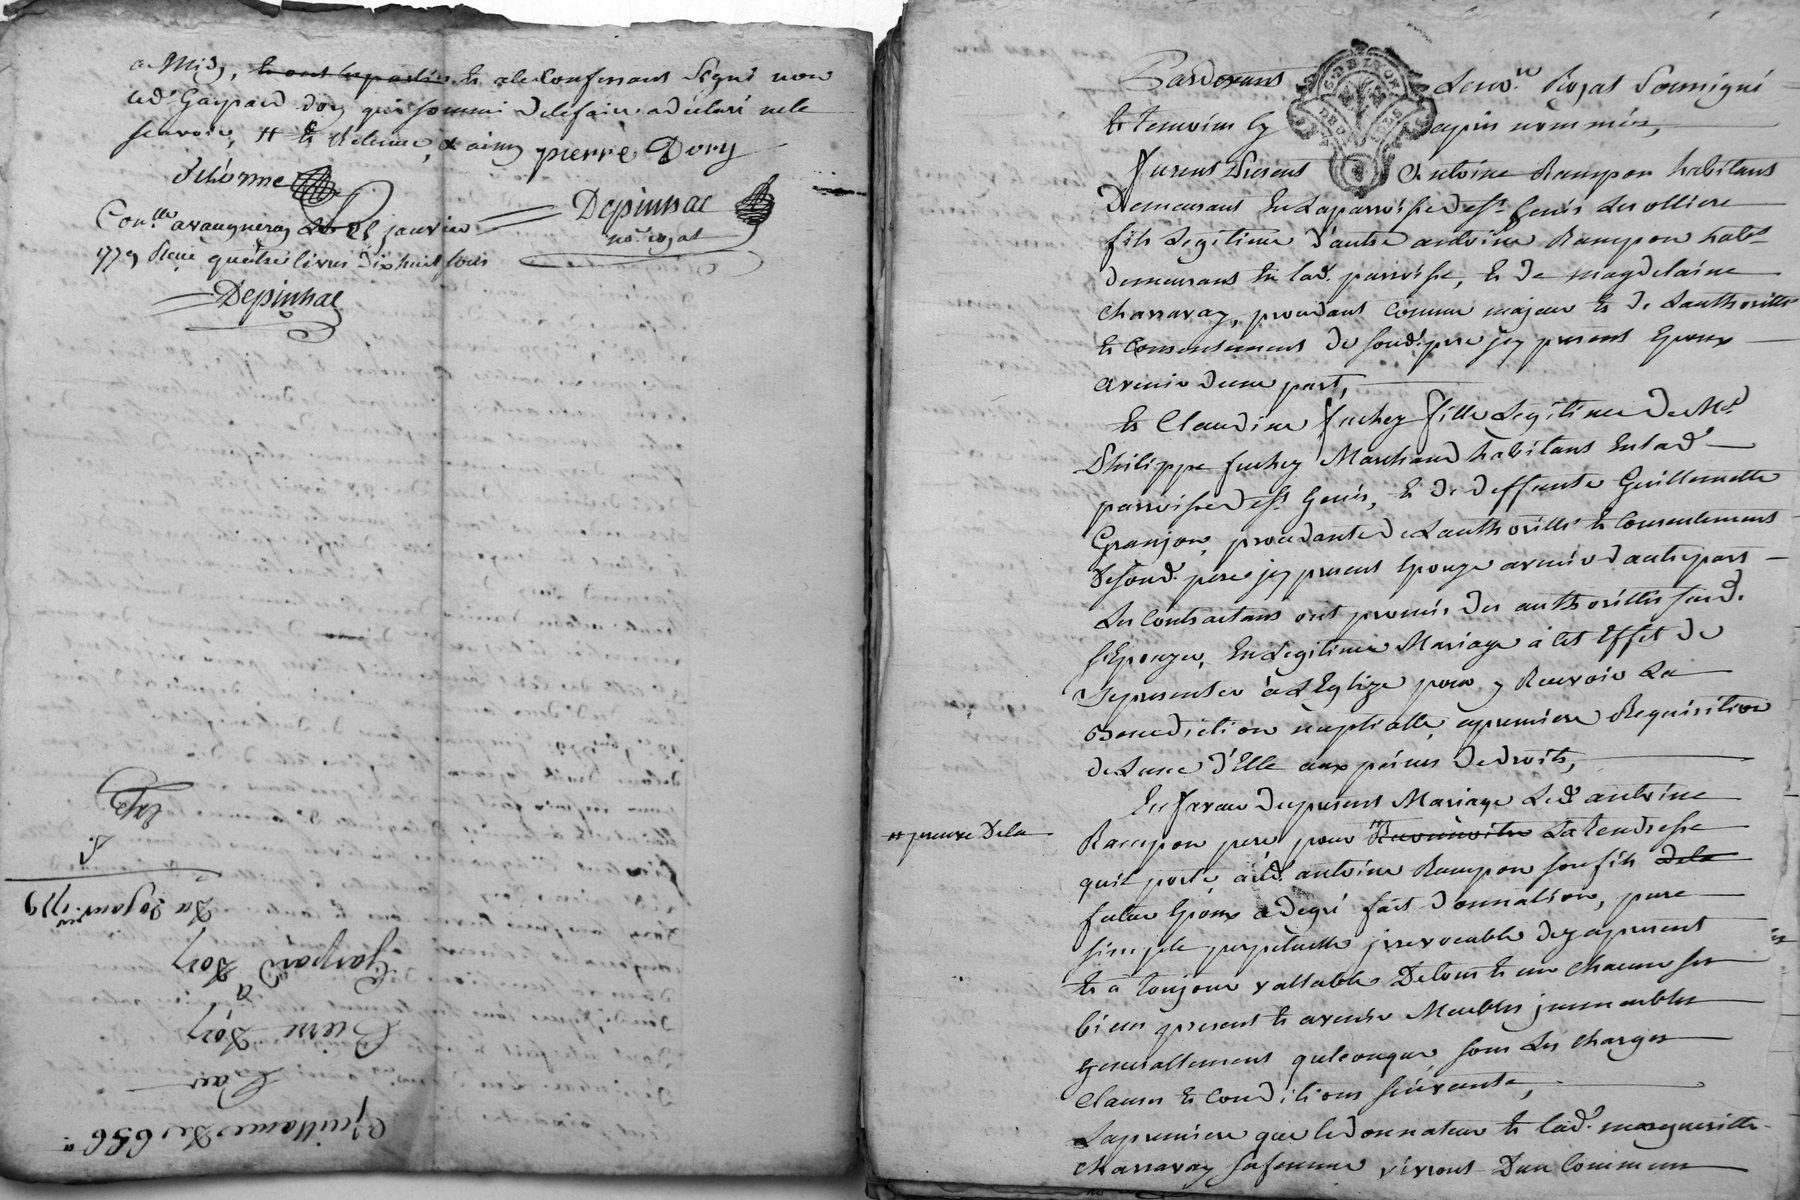 amis, et ale confessant signé non
led. Gaspard Dory qui sommé de le faire a déclaré ne le
scavoir, # & Retenue, & ainsy pierre Dory
Delorme
Depinhac
no.re royal
Con.lle a vaugneray le 21 janvier
1779 Reçu quatre livres dix huit sous
Depinhac
Quittance De 656#
Par
Pierre Dory
a
Gaspard Dory
Du 20 janvier 1779
Pardevant Le no.re Royal Soussigné
et temoins cy apres nommés,
furent Presens Antoine Rampon habitant
Demeurant En la parroisse de St Genis Les ollieres
fils Legitime d'autre antoine Rampon hab.t
demeurant En lad. parroisse, et de magdelaine
charavay, procedant comme majeur et de L'authorité
et consentement de sond. pere jcy present Epoux
avenir d'une part,
et Claudine fuchey fille Legitime de Md
Philippe fuchey Marchand habitant En lad.
parroisse de St Genis, et de deffunte Guillemette
Granjon, procedante de L'authorité et consentement
de sond. pere jcy present Epouze avenir d'autre part
Les Contractans ont promis des authorittés susd.
s'Epouzer, En Legitime Mariage à cet Effet de
se presenter à L'Eglize pour y Recevoir La
Benediction nuptialle, a premiere Requisition
de L'une d'Elle aux peines de droits,
En faveur du present Mariage Led. antoine
# preuve De la
Rampon pere pour La tendresse
quil porte aud. antoine Rampon son fils de la
futur Epoux a de gré fait Donnation, pure
simple perpetuelle jrrevocable dez apresent
et à toujour vallable De tous et un chacun ses
biens present et avenir Meubles jmmeubles
generallement quelconque, sous Les charges
clauses et conditions suivante,
La premiere que le donnateur et lad. margueritte
charavay sa femme vivront D'un Commun